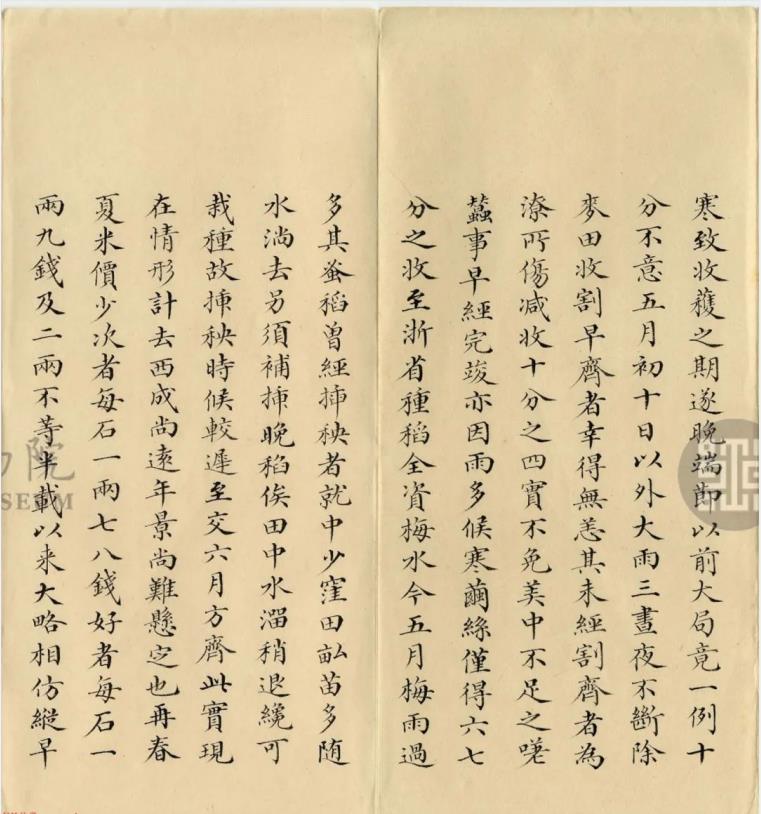 寒致收穫之期遂晚端節以前大局竟一例十
分不意五月初十日以外大雨三晝夜不斷除
麥田收割早齊者幸得無恙其未經割齊者為
潦所傷減收十分之四實不免美中不足之嘆
蠶事早經完竣亦因雨多候寒繭絲僅得六七
分之收至浙省種稻全資梅水今五月梅雨過
多其蚤稻曾經揷秧者就中少窪田畝苗多随
水淌去另須補揷晚稻俟田中水溜稍退纔可
栽種故揷秧時候較遲至交六月方齊此實現
在情形計去西成尚遠年景尚難懸定也再春
夏米價少次者每石一兩七八錢好者每石一
兩九錢及二兩不等半載以来大略相仿縱早
院
SEUM